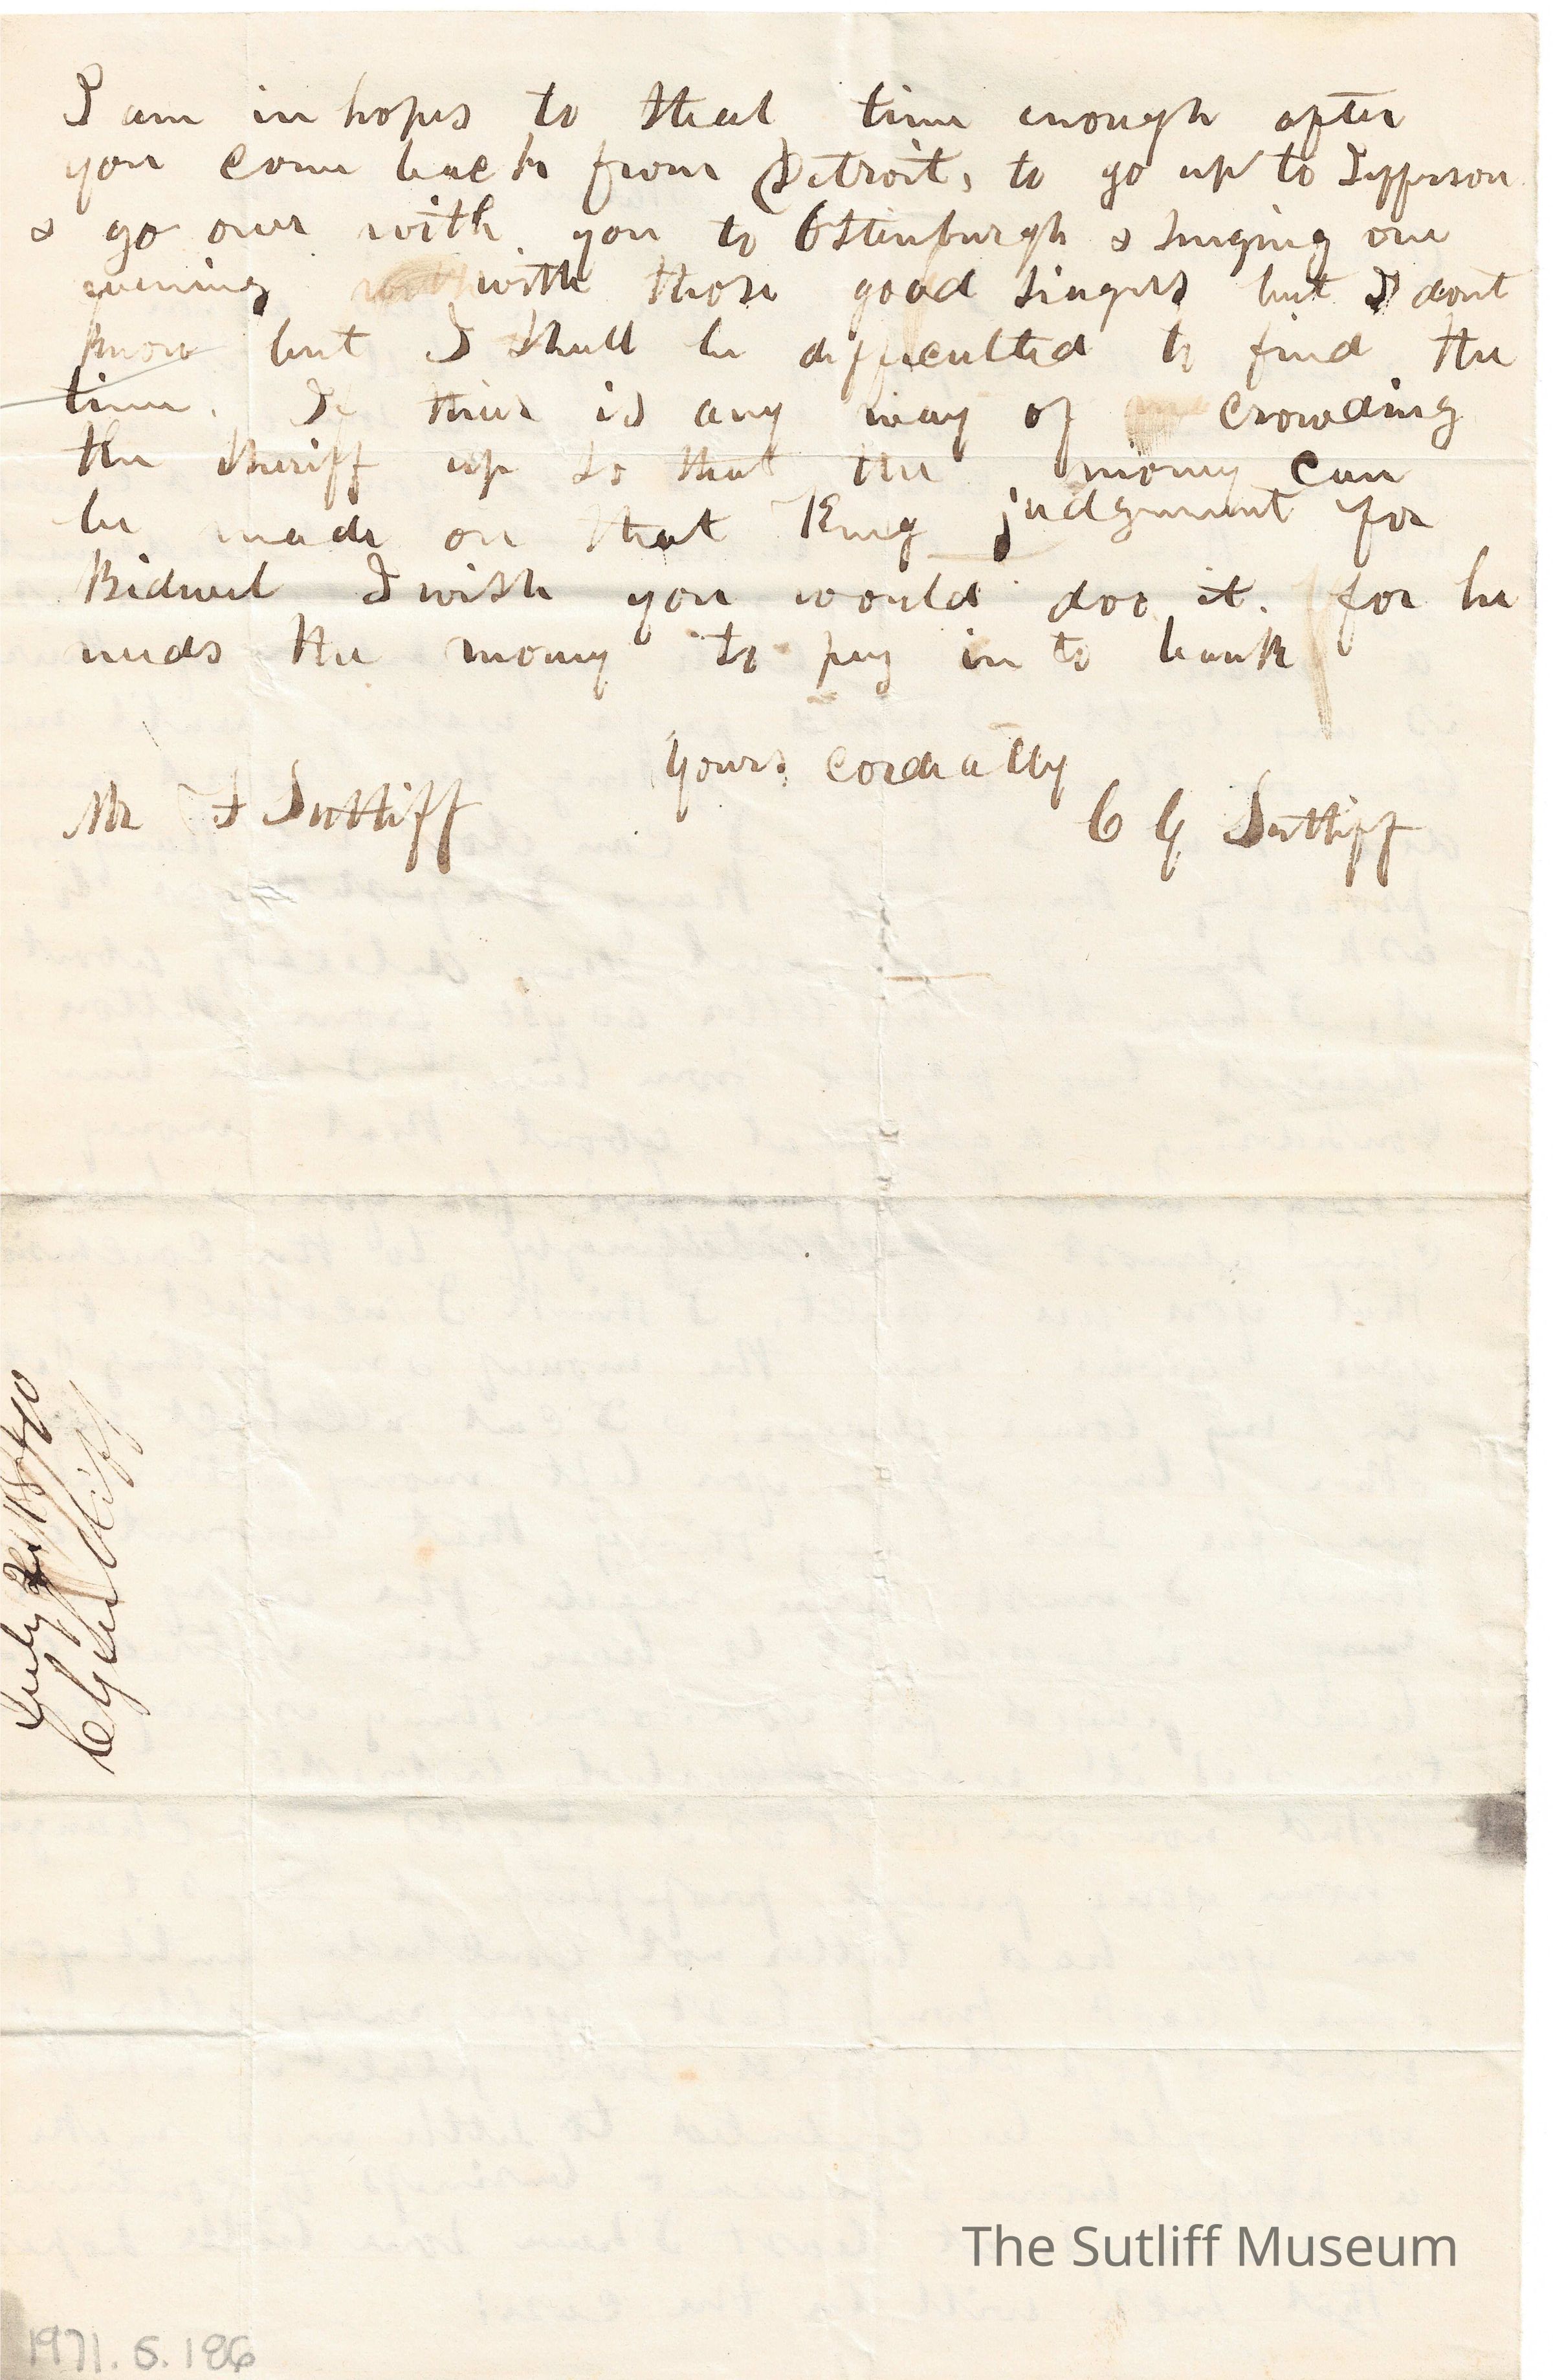 I am in hopes to steal time enough after
you come back from Detroit, to go up to Jefferson
& go over with you to Ostenburgh & singing one
evening with those good singers but I dont
know but I shall be difficulted to find the
time. If their is any way of crowding
the sheriff up so that the money can
be made on that King judgment for
Bidwel I wish you would doo it. for he
needs the money to pay in to bank
Yours cordially
Mr F Sutliff
C G Sutliff
July
C G Sutliff
The Sutliff Museum
1971.5.186